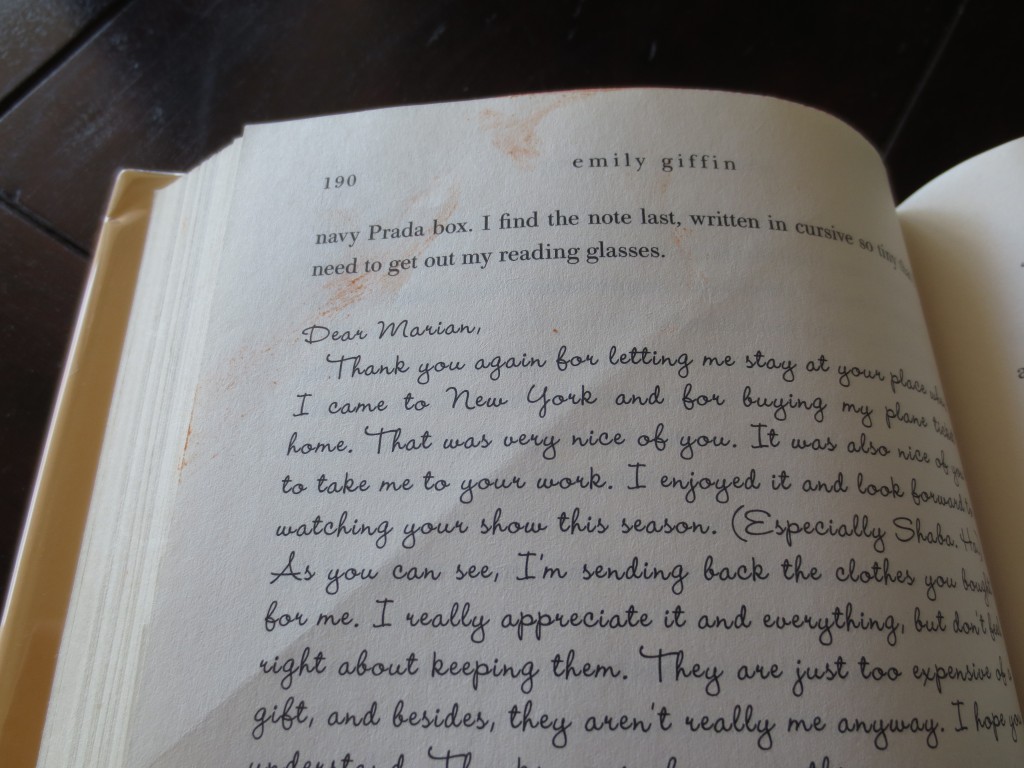 190
emily giffin
navy Prada box. I find the note last, written in cursive so tiny
need to get out my reading glasses.
Dear Marian,
Thank you again for letting me stay at your place when
I came to New York and for buying my plane ticket
home. That was very nice of you. It was also nice of you
to take me to your work. I enjoyed it and look forward to
watching your show this season. (Especially Shaba. Ha,
As you can see, I'm sending back the clothes you bought
for me. I really appreciate it and everything, but don't feel
right about keeping them. They are just too expensive of a
gift, and besides, they aren't really me anyway. I hope you
understand.